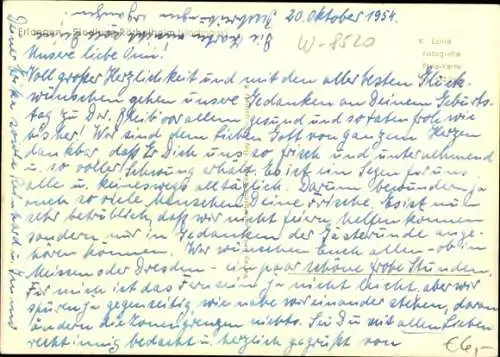 Die Karte
20. Oktober 1954.
W-8520
Erlangen
Unsere liebe Omi!
Voll großer Herzlichkeit und mit den allerbesten Glück-
wünschen gehen unsere Gedanken an Deinem Geburts-
tag zu Dir. Bleib vor allem gesund und so taten froh wie
bisher! Wir sind dem lieben Gott von ganzem Herzen
dankbar, daß Er Dich uns so frisch und unternehmend
u. so voller Schwung erhält. Es ist ein Segen für uns
alle u. keineswegs alltäglich. Darum bewundern ja
auch so viele Menschen Deine Frische. Es ist nun
sehr betrüblich, daß wir nicht feiern helfen können
sondern nur in Gedanken der Gästerunde ange-
hören können. Wir wünschen Euch allen - ob in
Meissen oder Dresden - ein paar schöne frohe Stunden.
Für mich ist das Fernsein ja nicht leicht, aber wir
spüren ja gegenseitig wie nahe wir einander stehen, daran
ändern die Zonengrenzen nichts. Sei Du mit allen Lieben
recht innig bedacht u. herzlich gegrüßt von
€6,-
K. Echle
Fotografie